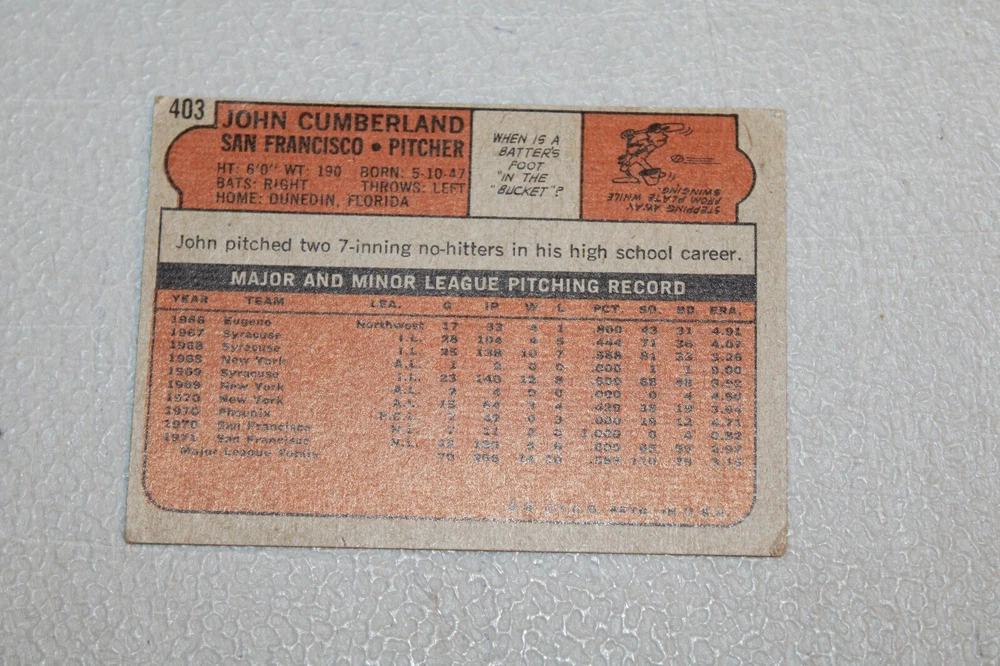 403
JOHN CUMBERLAND
SAN FRANCISCO • PITCHER
HT: 6'0" WT: 190 BORN: 5-10-47
BATS: RIGHT THROWS: LEFT
HOME: DUNEDIN, FLORIDA
WHEN IS A
BATTER'S
FOOT
"IN THE
"BUCKET"?
STEPPING AWAY
FROM PLATE WHILE
SWINGING
John pitched two 7-inning no-hitters in his high school career.
MAJOR AND MINOR LEAGUE PITCHING RECORD
YEAR TEAM LEA. G IP W L PCT. SO. BB ERA.
1966 Eugene Northwest 17 33 4 1 .800 43 31 4.91
1967 Syracuse I.L. 28 104 4 5 .444 71 36 4.07
1968 Syracuse I.L. 25 138 10 7 .588 81 33 3.26
1968 New York A.L. 1 2 0 0 .000 1 1 9.00
1969 Syracuse I.L. 23 140 12 8 .600 3.92
1969 New York A.L. 2 4 0 0 .000 0 4 4.50
1970 New York A.L. 15 64 3 4 .429 38 19 3.94
1970 Phoenix 7 47 0 3 .000 19 12 4.71
1970 San Francisco N.L. 7 11 2 0 1.000 4
1971 San Francisco N.L. 9 6 .600 65
Major League Totals 70 14 10